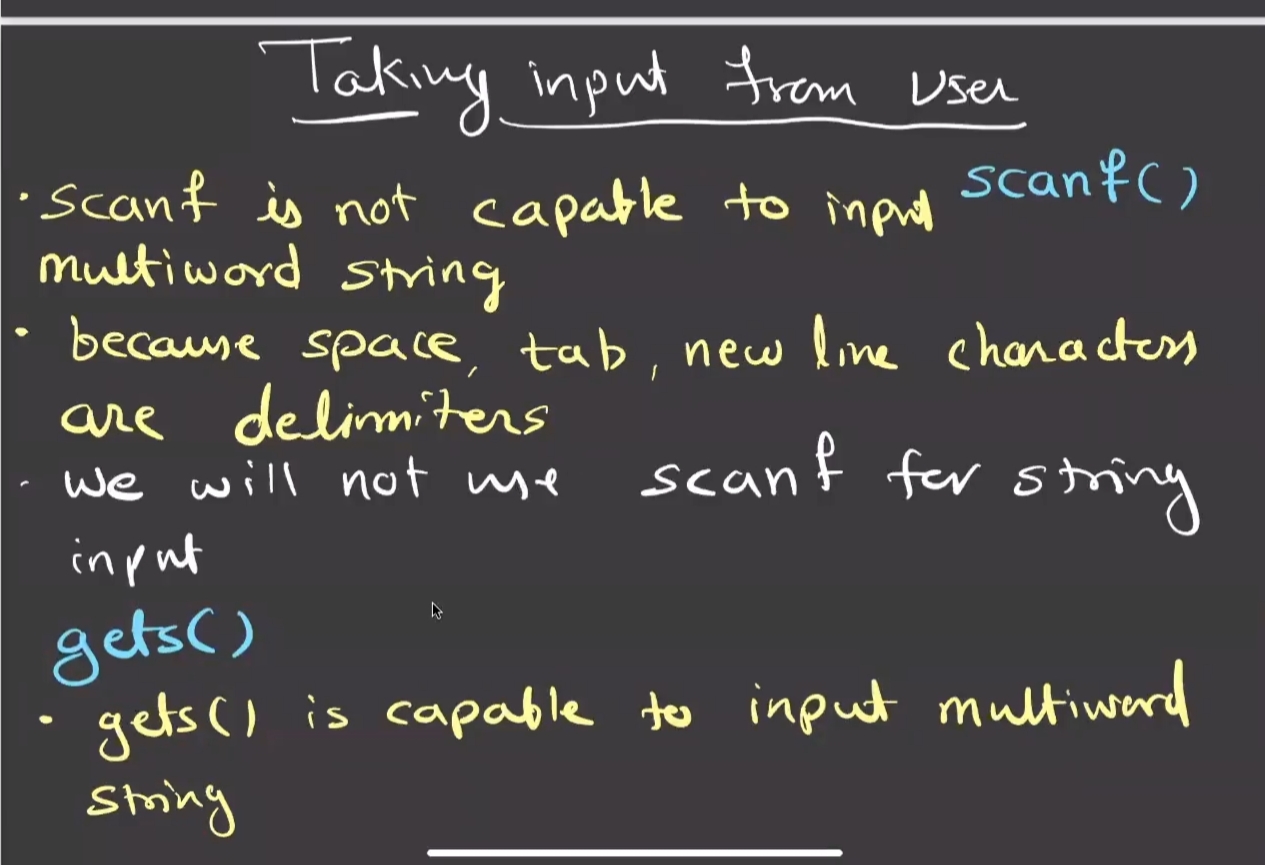 Taking input from User
scanf()
• scanf is not capable to input
multiword string
• because space, tab, new line characters
are delimiters
- we will not use scanf for string
input
gets()
• gets() is capable to input multiword
string